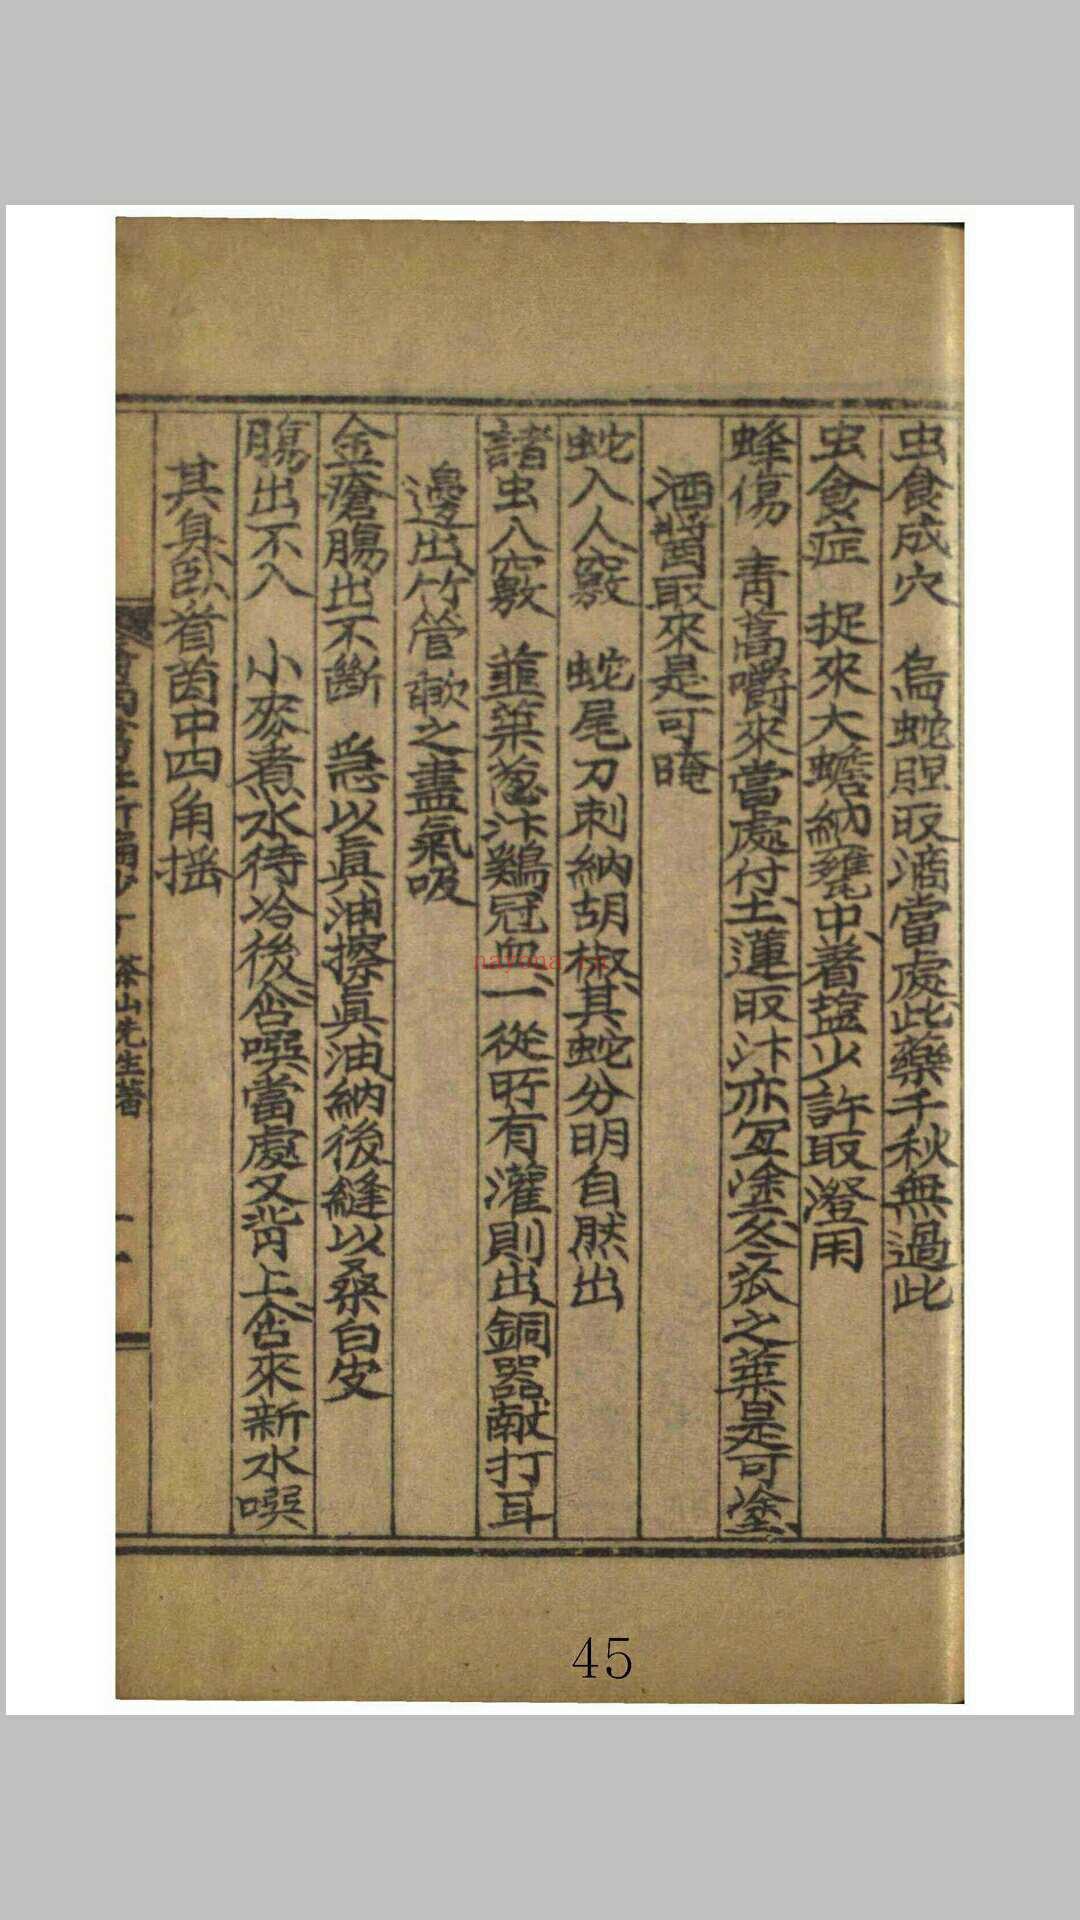 虫食成穴　烏蛇胆取滴當處此藥千秋無過此
虫食症　捉來大蟾納甕中著塩少許取澄用
蜂傷　靑蒿嚼來當處付土蓮取汁亦宜塗冬苽之葉是可塗
酒醬取來是可晻
蛇入人竅　蛇尾刀刺納胡椒其蛇分明自然出
諸虫入竅　韮葉葱汁鷄冠血一從所有灌則出銅器敲打耳
邊出竹管歃之盡氣吸
金瘡腸出不斷　急以眞油擦眞油納後縫以桑白皮
腸出不入　小麥煮水待冷後含噀當處又背上含來新水噀
其臭臥着茵中四角揺
茶山先生著
nayona.cn
45